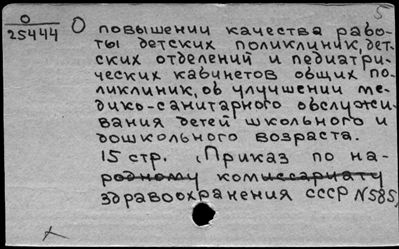 5
О
25444
О повышении качества рабо-
ты детских поликлиник, дет-
ских отделений и педиатри-
ческих кабинетов общих по-
ликлиник, об улучшении ме-
дико-санитарного обслужи-
вания детей школьного и
дошкольного возраста.
15 стр. (Приказ по на-
родному комиссариату
здравоохранения СССР №585,